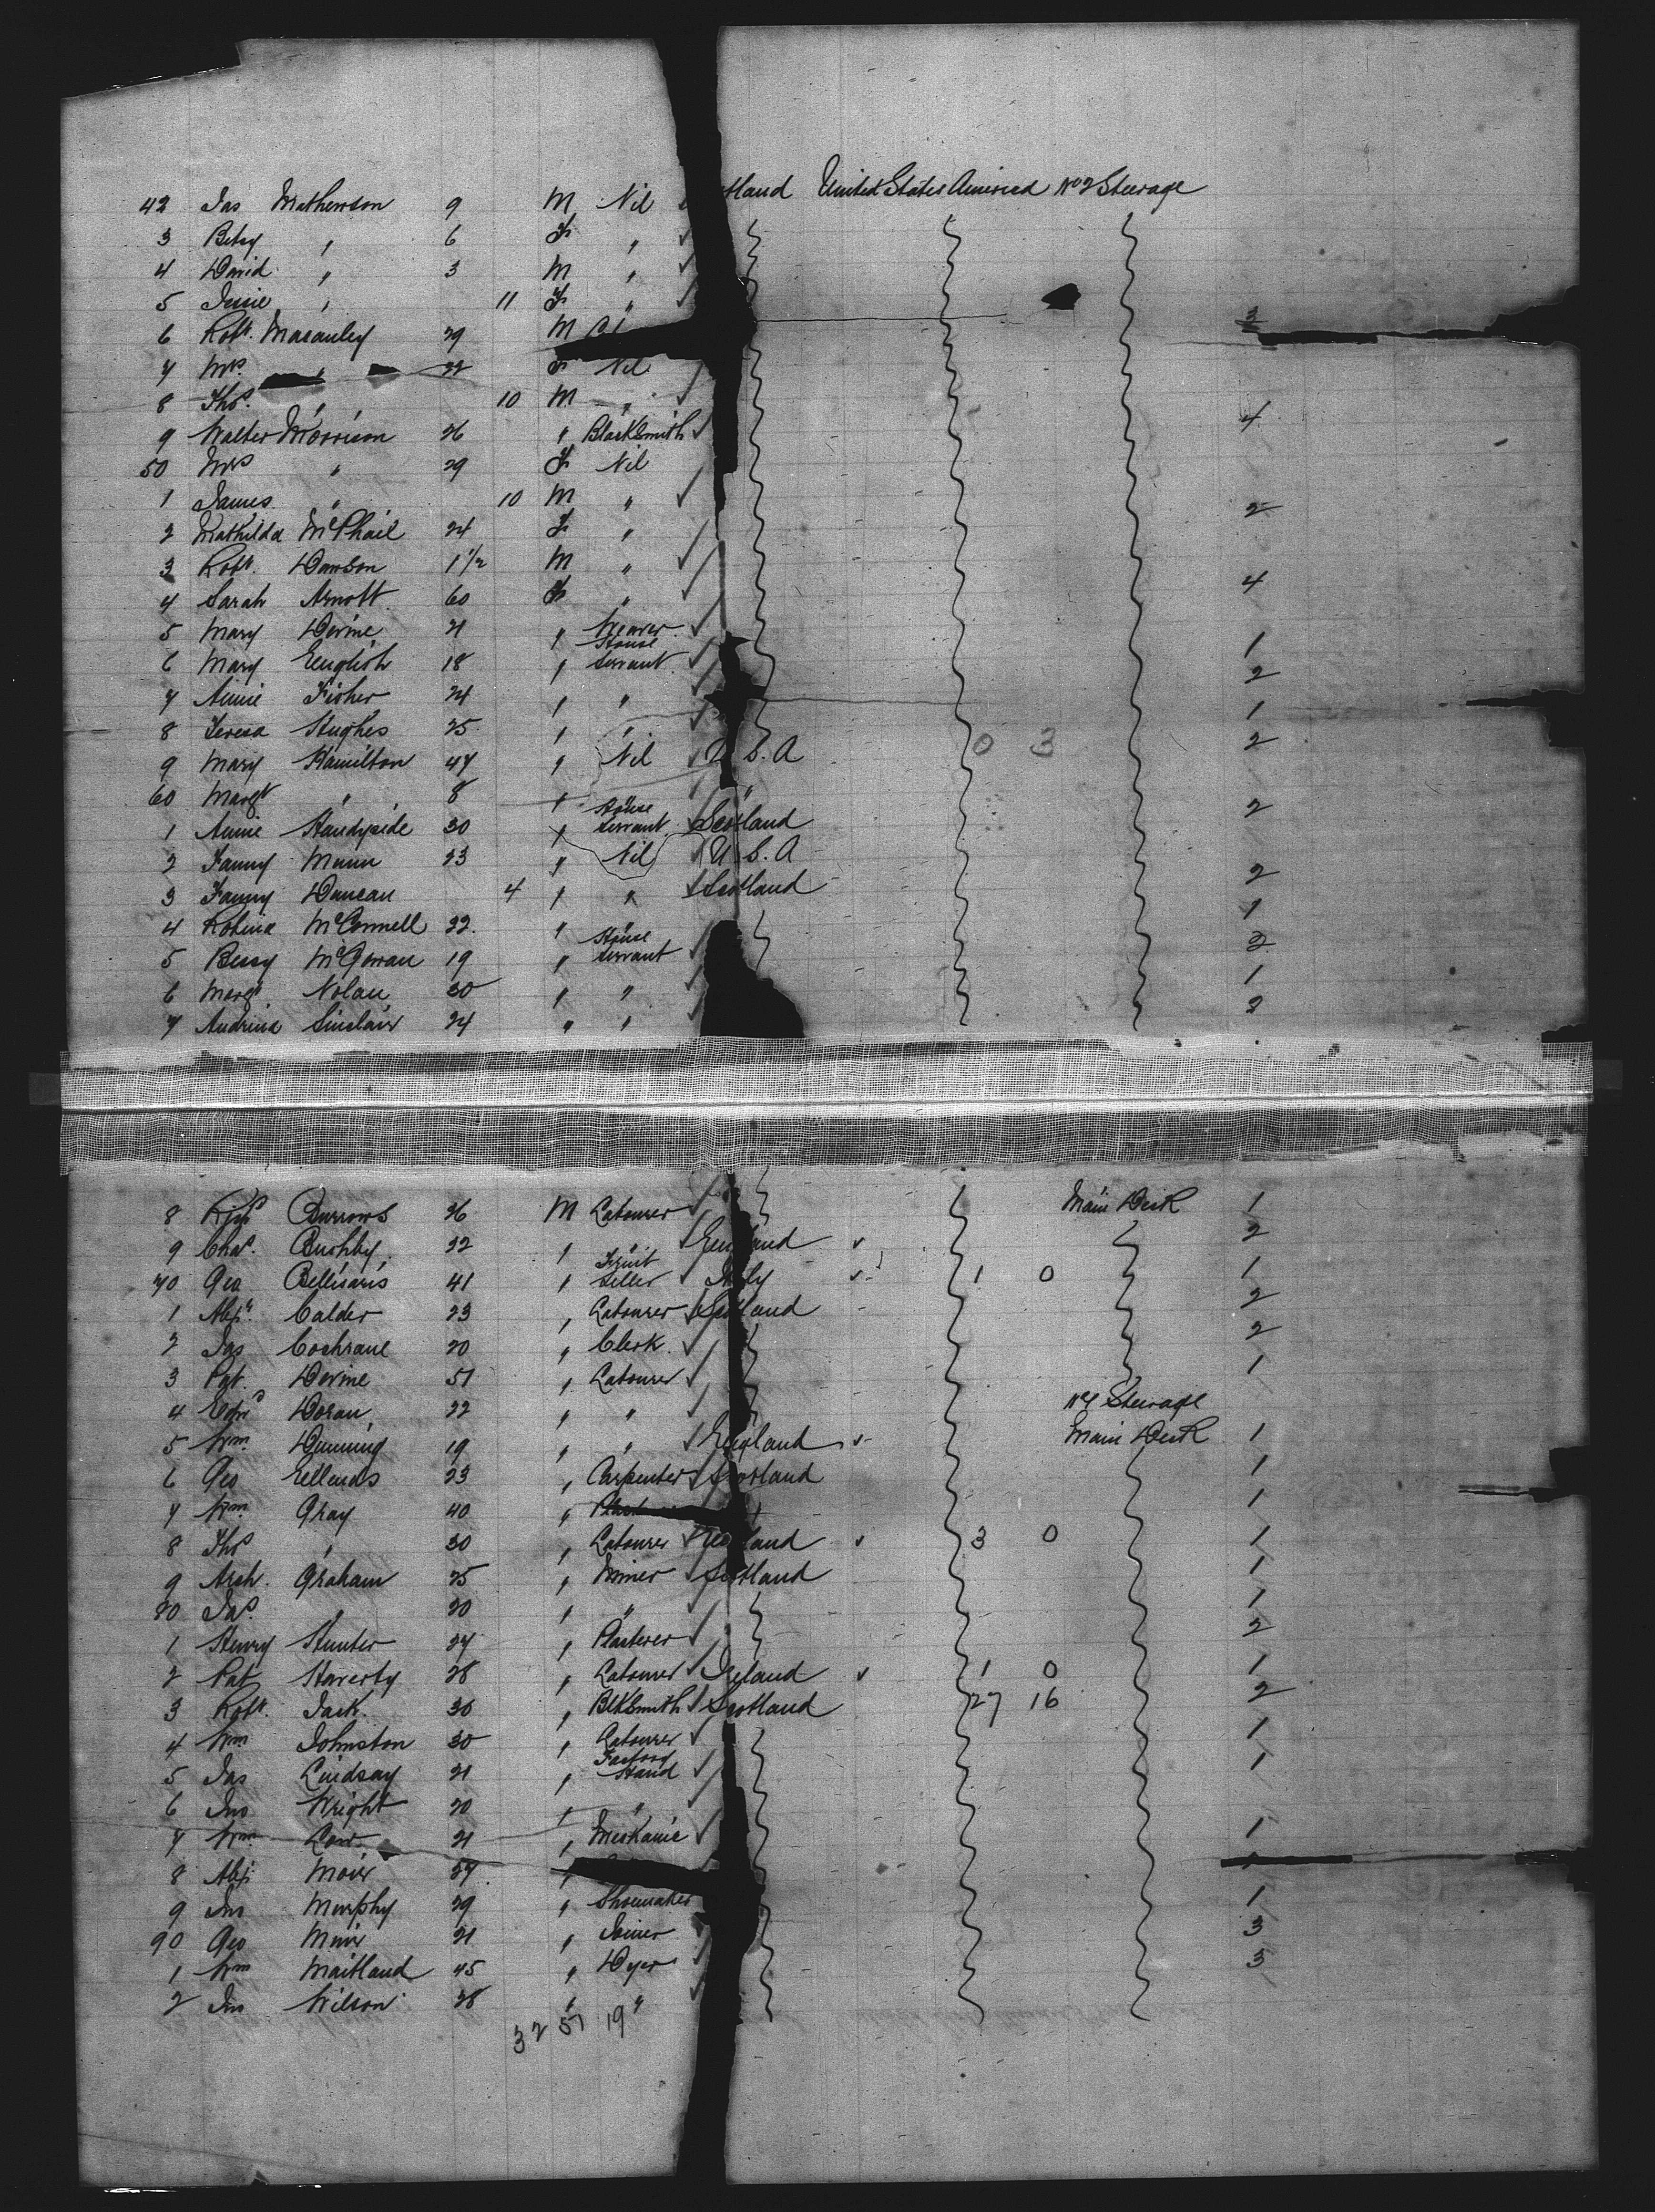 42 Jas Mathewson 9 M Nil tland United States America No 2 Steerage
3 Betsy " 6 F "
4 David " 3 M "
5 Jessie " 11 F "
6 Robt. Macauley 29 M 3
7 Mrs. " 22 F Nil
8 Thos. " 10 M "
9 Walter Morrison 26 " Blacksmith 4
50 Mrs " 29 F Nil
1 James " 10 M " 2
2 Mathilda McPhail 24 F "
3 Robt. Dawson 1 1/2 M "
4 Sarah Arnott 60 F " 4
5 Mary Devine 21 " Weaver 1
6 Mary English 18 " House Servant 2
7 Annie Fisher 24 " " 1
8 Teresa Hughes 25 " " 2
9 Mary Hamilton 47 " Nil U.S.A 0 3
60 Margt " 8 " " " 2
1 Annie Handyside 30 " House Servant Scotland
2 Fanny Munn 23 " Nil U.S.A
3 Fanny Duncan 4 " " Scotland 2
4 Robina McConnell 22 " " 1
5 Bessy McGowan 19 " House Servant 2
6 Margt Nolan 30 " " 1
7 Andrina Sinclair 24 " " 2
8 Burrows 26 M Labourer Main Deck 1
9 Chas. Bushby 22 " " England 2
70 Geo Bellisaris 41 " Fruit Seller Italy 1 0 1
1 Alexr. Calder 23 " Labourer Scotland 2
2 Jas Cochrane 20 " Clerk 2
3 Pat. Devine 51 " Labourer 1
4 Edwd Doran 22 " " No 1 Steerage
5 Wm. Dunning 19 " " England Main Deck 1
6 Geo 23 " Carpenter Scotland 1
7 Wm. Gray 40 " 1
8 Thos " 30 " Labourer land 3 0 1
9 Arch. Graham 25 " Miner Scotland 1
80 Jas. " 20 " " 1
1 Henry Hunter 27 " Plasterer 2
2 Pat Haverty 28 " Labourer Ireland 1 0 1
3 Robt. Jack 36 " BlkSmith Scotland 27 16 2
4 Wm Johnston 30 " Labourer 1
5 Jas Lindsay 21 " Factory Hand 1
6 Jno Wright 20 " "
7 Wm. Law 21 " Mechanic 1
8 Alex. Moir 57 "
9 Jno Murphy 29 " Shoemaker 1
90 Geo Muir 21 " Joiner 3
1 Wm Maitland 45 " Dyer 3
2 Jno Wilson 28 " "
32 57 19